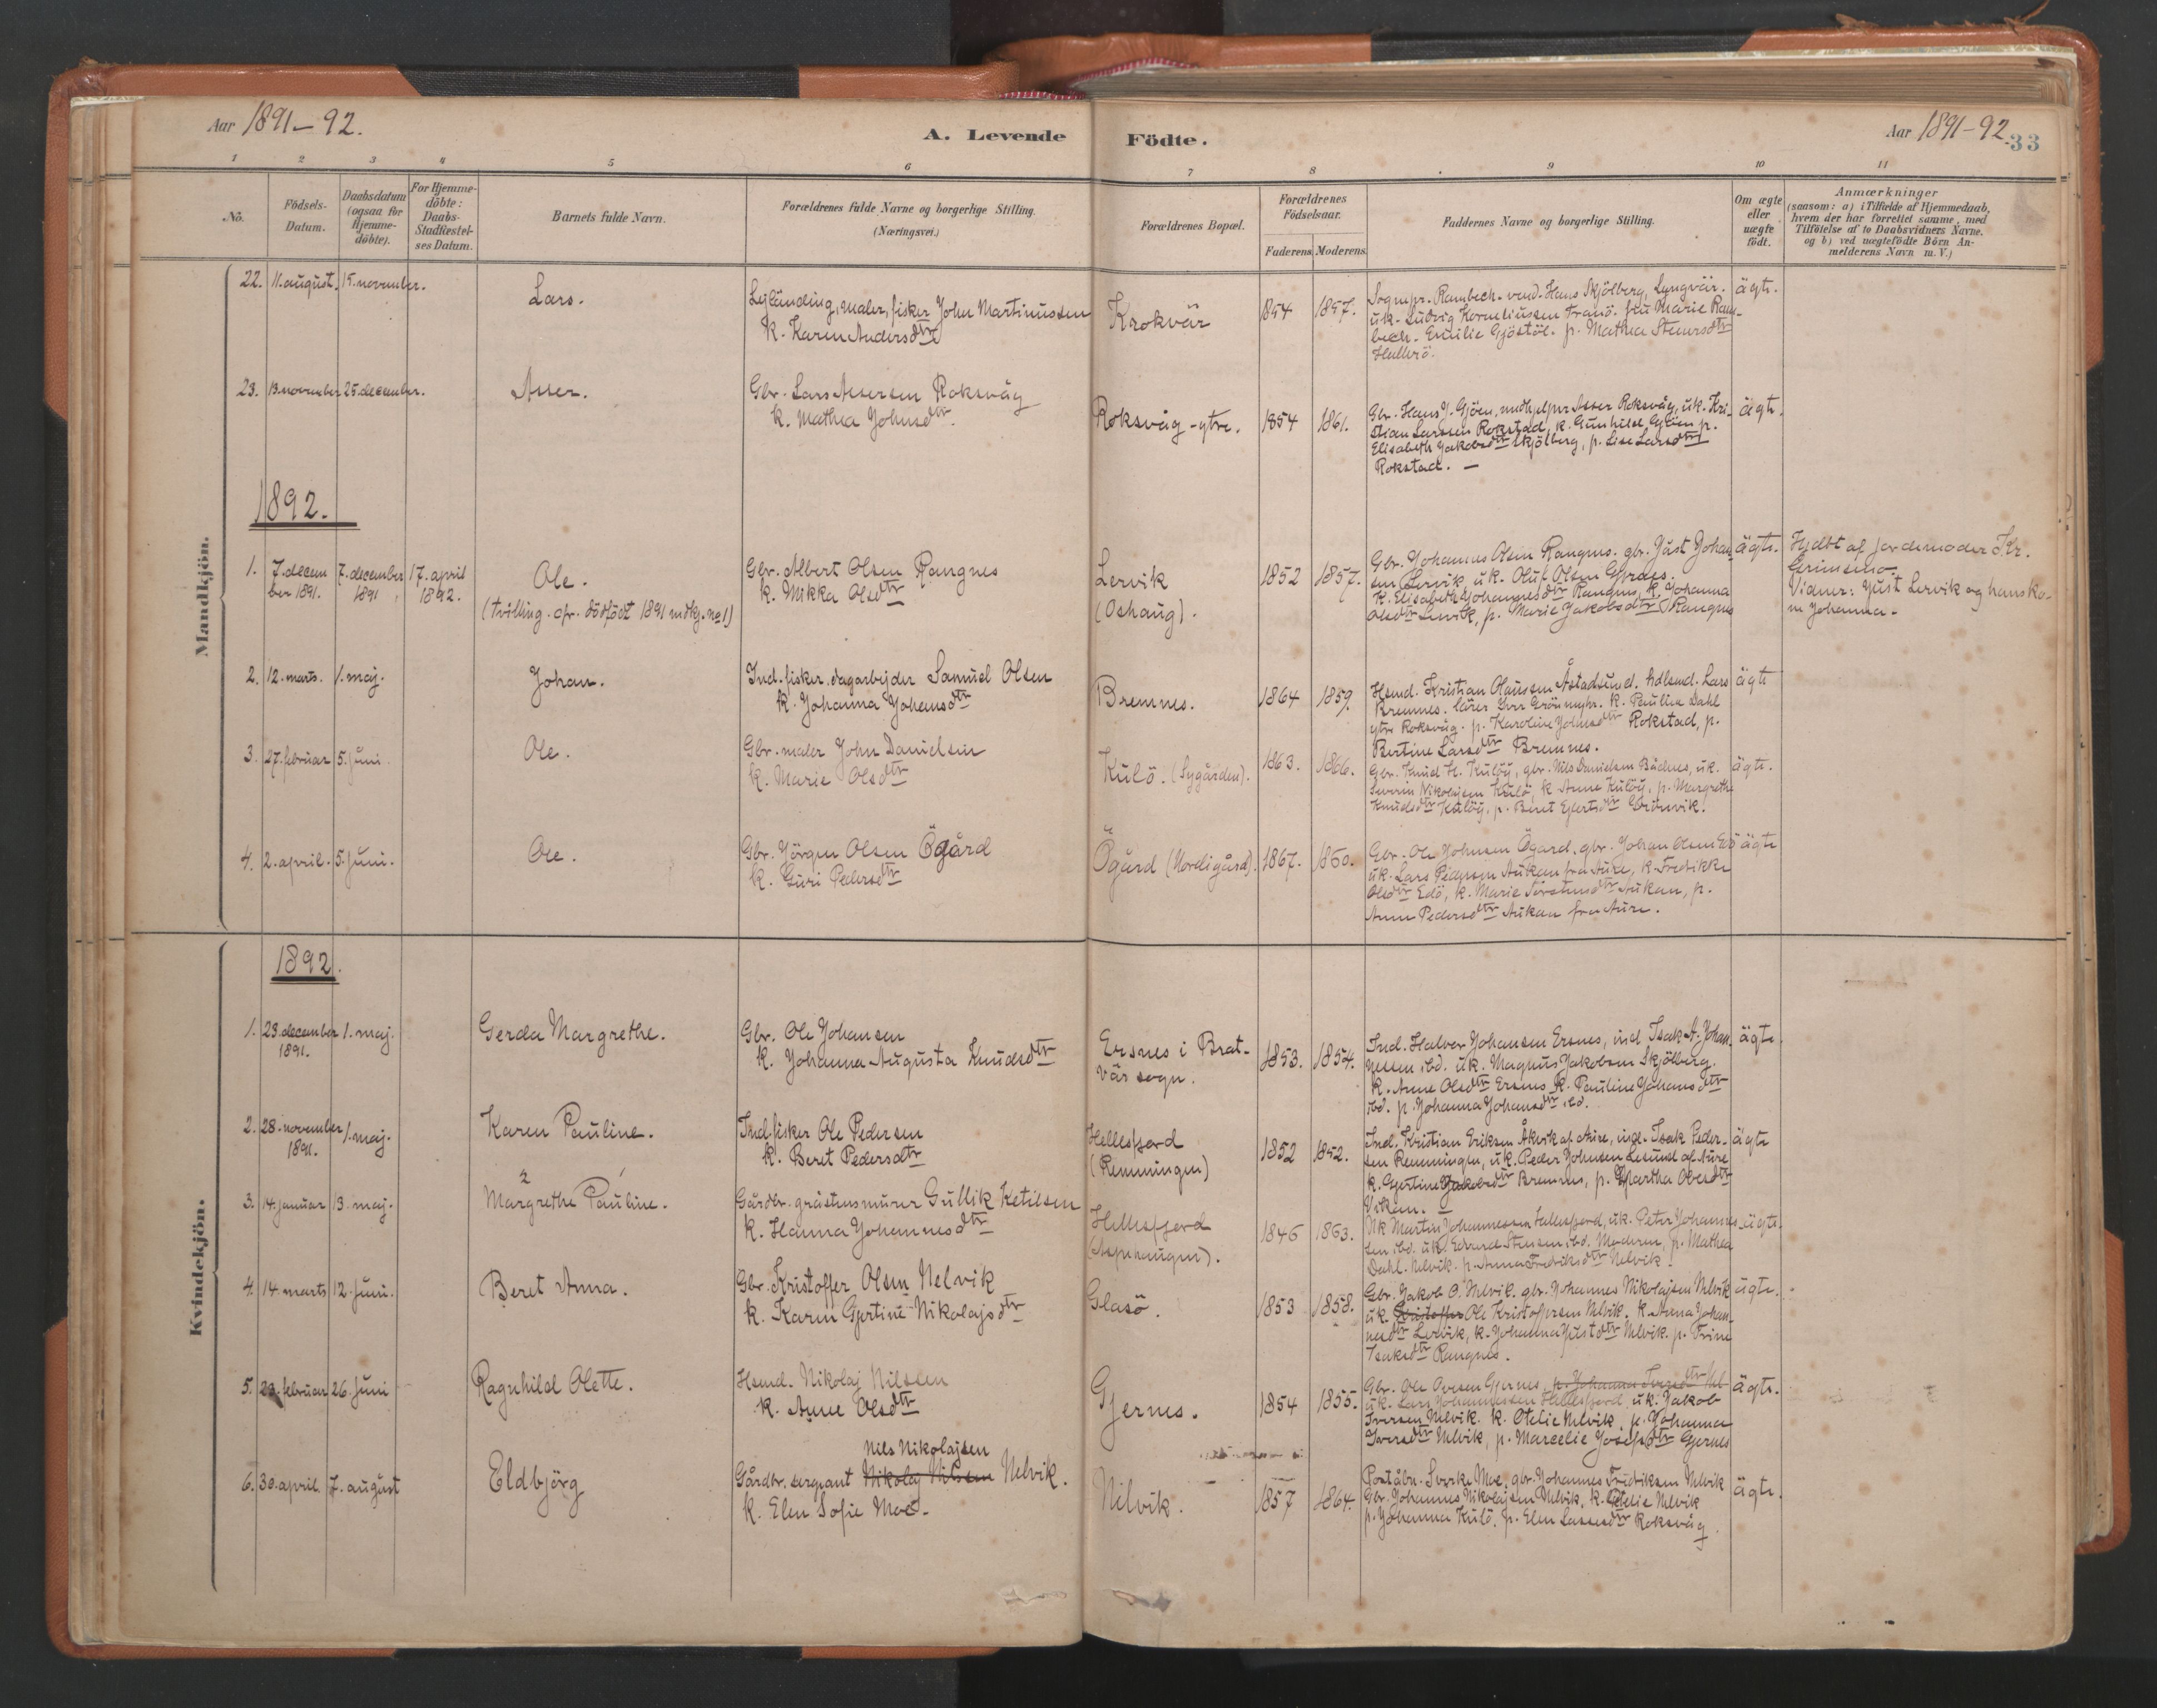 Aar 1891-92.
A. Levende
Födte.
Aar 1891-92
33
1 2 3 4 5 6 7 8 9 10 11
No.
Födsels-
Datum.
Daabsdatum
(ogsaa for
Hjemme-
döbte).
For Hjemme-
döbte:
Daabs-
Stadfæstel-
ses Datum.
Barnets fulde Navn.
Forældrenes fulde Navne og borgerlige Stilling.
(Næringsvei.)
Forældrenes Bopæl.
Forældrenes
Födselsaar.
Faderens Moderens
Faddernes Navne og borgerlige Stilling.
Om ægte
eller
uægte
födt.
Anmærkninger
(saasom: a) i Tilfælde af Hjemmedaab,
hvem der har forrettet samme, med
Tilföielse af to Daabsvidners Navne.
og b) ved uægtefödte Börn An-
melderens Navn m. V.)
Mandkjön.
22. 11. august. 15. november.
Lars.
maler, fisker John Martinussen
k. Karen Andersdtr
Krokvär
1854 1857.
Sognepr. Rambech. Hans Skjölberg, Lyngvär.
uk. Ludvig Korneliussen Tranö. fru Marie Ram-
bech. Emilie p. Mathea
ägte.
23. 13. november 25. december.
Asser.
Gbr. Lars Assersen Roksvåg
k. Mathea Johnsdtr.
Roksvåg - ytre.
1854 1861.
Gbr. Hans J. Gjöen, Asser Roksvåg, uk. Kri-
stian Larssen Rokstad, k. Gunhild Gjöen p.
Elisabeth Jakobsdtr Skjölberg, p. Lise Larsdtr
Rokstad. —
ägte.
1892.
1. 7. decem
ber 1891. 7. december
1891 17. april
1892.
Ole.
(tvilling. cfr. dödfödt 1891 mdkj. no 1)
Gbr. Albert Olsen Rangnes
k. Mikka Olsdtr
Lervik
(Oshaug).
1852 1857.
Gbr. Johannes Olsen Rangnes. gbr. Just Johan-
sen Lervik uk. Oluf Olsen Gjernes.
k. Elisabeth Johannesdtr Rangnes, k. Johanna
Olsdtr Lervik, p. Marie Jakobsdtr Rangnes
ägte.
Hjdbt af jordemoder Kr.
Grimsmo.
Vidner: Just Lervik og hans ko-
ne Johanna.
2. 12. marts. 1. maj.
Johan.
Ind. fisker. dagarbejder Samuel Olsen
k. Johanna Johansdtr
Bremnes.
1864 1859.
Hsmd. Kristian Olaussen Åstadsund. hdlsmd. Lars
Bremnes. lärer k. Pauline Dahl
ytre Roksvåg. p. Karoline Johnsdtr Rokstad, p.
Bertine Larsdtr Bremnes.
ägte
3. 27. februar 5. juni.
Ole.
Gbr. maler John Danielsen
k. Marie Olsdtr
Kulö. (Sygården).
1863. 1866.
Gbr. Knud H. Kulöy, gbr. Nils Danielsen Bådnes, uk.
Severin Nikolajsen Kulö, k. Anne Kulöy, p. Margrethe
Knudsdtr Kulöy, p. Beret Ejertsdtr Grönvik.
ägte.
4. 2. april. 5. juni.
Ole.
Gbr. Jörgen Olsen Ögård
k. Guri Pedersdtr
Ögård (Nordigård).
1867. 1860.
Gbr. Ole Johnsen Ögard, gbr. Johan Olsen Edö
uk. Lars Pedersen Aukan fra Aure, k. Fredrikke
Olsdtr Edö, k. Marie Torstensdtr Aukan, p.
Anne Pedersdtr Aukan fra Aure.
ägte
Kvindekjön.
1892.
1. 23. december
1891. 1. maj.
Gerda Margrethe.
Gbr. Ole Johansen
k. Johanna Augusta Knudsdtr
Ersnes i Brat-
vär sogn.
1853. 1854.
Ind. Halvor Johansen Ersnes, ind Isak A. Johan-
nessen ibd. uk. Magnus Jakobsen Skjölberg.
k. Anne Olsdtr Ersnes k. Pauline Johansdtr
ibd. p. Johanna Johansdtr ibd.
ägte
2. 28. november
1891. 1. maj.
Karen Pauline.
Ind. fisker Ole Pedersen
k. Beret Pedersdtr
Hellesfjord
(Remmingen)
1852 1852.
Ind. Kristian Eriksen Åkvik af Aure, ind. Isak Peder-
sen Remmingen, uk. Peder Johnsen Lesund af Aure
k. Gjertine Jakobsdtr Bremnes, p. Martha Olsdtr
Vikan. —
ägte
3. 14. januar 13. maj.
2 1
Margrethe Pauline.
Gårdbr. gråstensmurer Gullik Ketilsen
k. Hanna Johannesdtr
Hellesfjord
(Aspehaugen).
1846 1863.
Uk Martin Johannessen Hellesfjord, uk. Peter Johannes-
sen ibd. uk. Edvard Stensen ibd. Moderen, p. Mathea
Dahl. Nelvik. p. Anna Fredriksdtr Nelvik.
ägte.
4. 14 marts 12. juni.
Beret Anna.
Gbr. Kristoffer Olsen Nelvik
k. Karen Gjertine Nikolajsdtr
Glasö.
1853 1858.
Gbr. Jakob O. Nelvik. gbr. Johannes Nikolajsen Nelvik
uk. Kristoffer Ole Kristoffersen Nelvik. k. Anna Johan-
nesdtr Lervik, k. Johanna Justdtr Nelvik. p. Trine
Isaksdtr Rangnes.
ägte.
5. 23. februar 26. juni
Ragnhild Olette.
Hsmd. Nikolaj Nilssen
k. Anne Olsdtr
Gjernes.
1854 1855.
Gbr. Ole Ovesen Gjernes, p. Johanna Iversdtr Nel-
uk. Lars Johannessen Hellesfjord uk. Jakob
Iversen Nelvik. k. Otelie Nelvik p. Johanna
Iversdtr Nelvik, p. Marcelie Josefsdtr Gjernes
ägte.
6. 30. april. 7. august
Eldbjörg
Nils Nikolajsen
Gårdbr. sergeant Nikolaj Nilssen Nelvik.
k. Elen Sofie Moe.
Nelvik.
1857 1864.
Poståbn. Sverke Moe, gbr. Johannes Fredriksen Nelvik
Gbr. Johannes Nikolajsen Nelvik, k. Otelie Nelvik
p. Johanna Kulö. p. Elen Lassesdtr Roksvåg.
ägte.